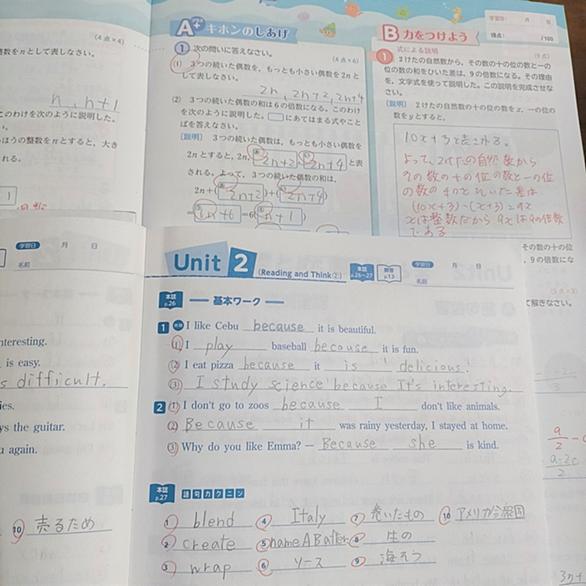 (4点×4)
整数をnとして表しなさい。
n, n+1
このわけを次のように説明した。
ほうの整数をnとすると、大き
れる。
A+ キホンのしあげ
1 次の問いに答えなさい。
(4点×6)
(1) 3つの続いた偶数を、もっとも小さい偶数を2nと
して表しなさい。
2n, 2n+2, 2n+4
(2) 3つの続いた偶数の和は6の倍数になる。このわけ
を次のように説明した。□にあてはまる式やこと
ばを答えなさい。
[説明] 3つの続いた偶数は、もっとも小さい偶数を
2nとすると、2n, 2n+2, 2n+4 と表
される。よって、3つの続いた偶数の和は、
2n+(2n+2)+(2n+4)
=6n+6=6(n+1)
B 力をつけよう
学習日 月 日
得点: /100
式による説明
1 2けたの自然数から、その数の十の位の数と一の
位の数の和をひいた差は、9の倍数になる。その理由
を、文字式を使って説明した。この説明を完成させな
さい。
[説明] 2けたの自然数の十の位の数をx、一の位の
数をyとすると、
10x+yと表される。
よって、2けたの自然数から
その数の十の位の数と一の位
の数の和をひいた差は
xは整数だから9xは9の倍数
である
その数の十の位
、9の倍数にな
て解きなさい。
学習日 月 日
名前
nteresting.
is easy.
s difficult.
ies.
ys the guitar.
u again.
10 売るため
Unit 2 (Reading and Think②)
本誌 p.26~27
解答 p.13
学習日 月 日
名前
本誌 p.26 基本ワーク
1 I like Cebu because it is beautiful.
(1) I play baseball because it is fun.
(2) I eat pizza because it is delicious.
(3) I study science because It's interesting.
2 (1) I don't go to zoos because I don't like animals.
(2) Because it was rainy yesterday, I stayed at home.
(3) Why do you like Emma? — Because she is kind.
本誌 p.27 語句カクニン
1 blend 4 Italy 7 巻いたもの 10 アメリカ合衆国
2 create 5 name A B 8 生の
3 wrap 6 ソース 9 海そう